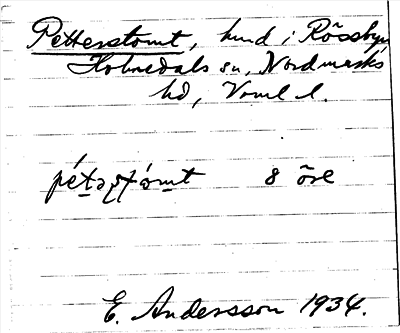 Petterstomt, hmd i Rössbyn
Holmedals sn, Nordmarks
hd, Vrml l.
8 öre
E. Andersson 1934.